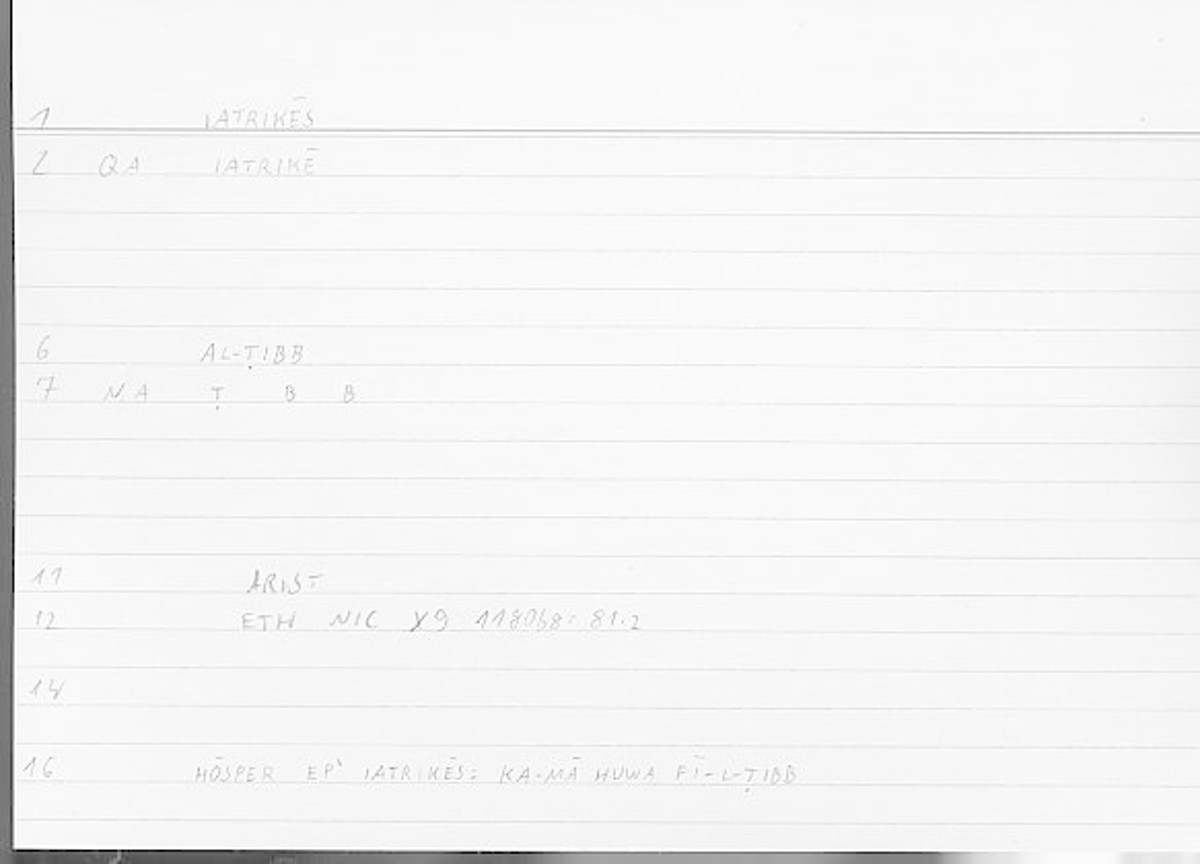 1 IATRIKĒS
2 QA IATRIKĒ
6 AL-ṬIBB
7 NA Ṭ B B
11 ARIST
12 ETH NIC X9 1180b8: 81.2
14
16 HŌSPER EP' IATRIKĒS: KA-MĀ HUWA FĪ-L-ṬIBB